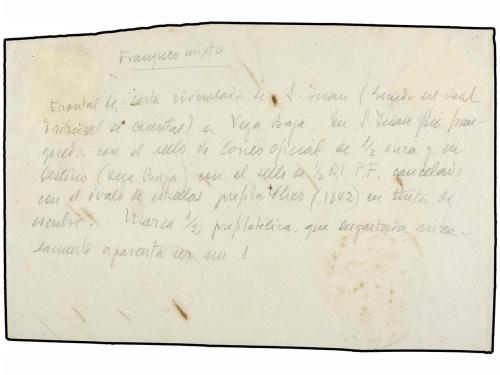 Franqueo mixto
Frontal de carta circulada de S. Juan (Escudo del Real
Tribunal de cuentas) a Vega Baja. En S. Juan fué fran-
queda con el sello de Correo oficial de 1/2 onza y en
destino (Vega Baja) con el sello de 1/2 Rl. P.F. cancelado
con el óvalo de estrellas prefilatélico (1842) en tinta de
escribir. Marca 1/2, prefilatélica, que
samente aparenta ser un 1